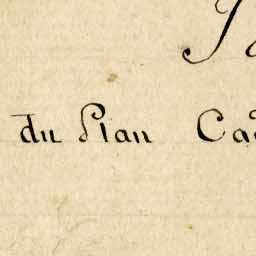 du Plan Ca